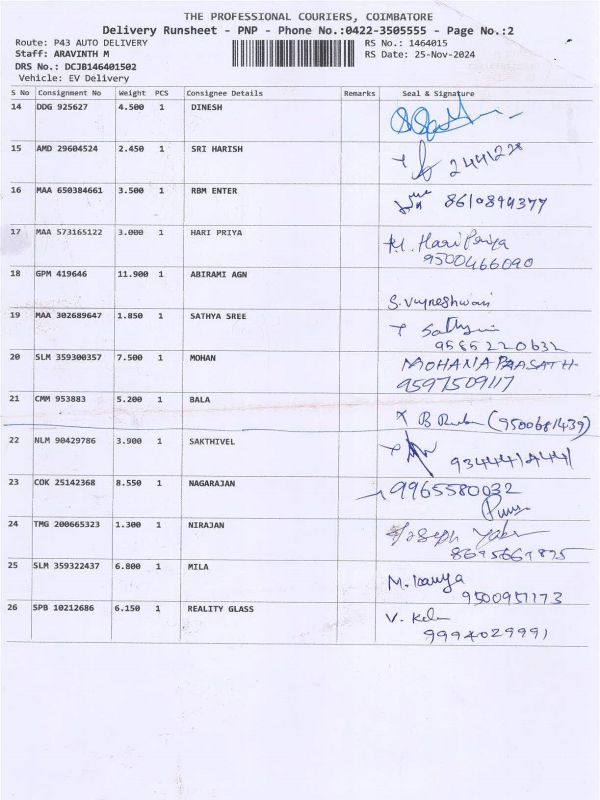 THE PROFESSIONAL COURIERS, COIMBATORE
Delivery Runsheet - PNP - Phone No.:0422-3505555 - Page No.:2
Route: P43 AUTO DELIVERY
RS No.: 1464015
Staff: ARAVINTH M
RS Date: 25-Nov-2024
DRS No.: DCJB146401502
Vehicle: EV Delivery
S No Consignment No Weight PCS Consignee Details Remarks Seal & Signature
14 DDG 925627 4.500 1 DINESH
15 AMD 29604524 2.450 1 SRI HARISH
16 MAA 650384661 3.500 1 RBM ENTER
8610894377
17 MAA 573165122 3.000 1 HARI PRIYA
M. Hari Priya
9500466090
18 GPM 419646 11.900 1 ABIRAMI AGN
19 MAA 302689647 1.850 1 SATHYA SREE
9585220632
20 SLM 359300357 7.500 1 MOHAN
MOHANAPRASATH
9597509117
21 CMM 953883 5.200 1 BALA
(9500681439)
22 NLM 90429786 3.900 1 SAKTHIVEL
23 COK 25142368 8.550 1 NAGARAJAN
9965580032
24 TMG 200665323 1.300 1 NIRAJAN
Joseph
25 SLM 359322437 6.800 1 MILA
9500951173
26 SPB 10212686 6.150 1 REALITY GLASS
9994029991